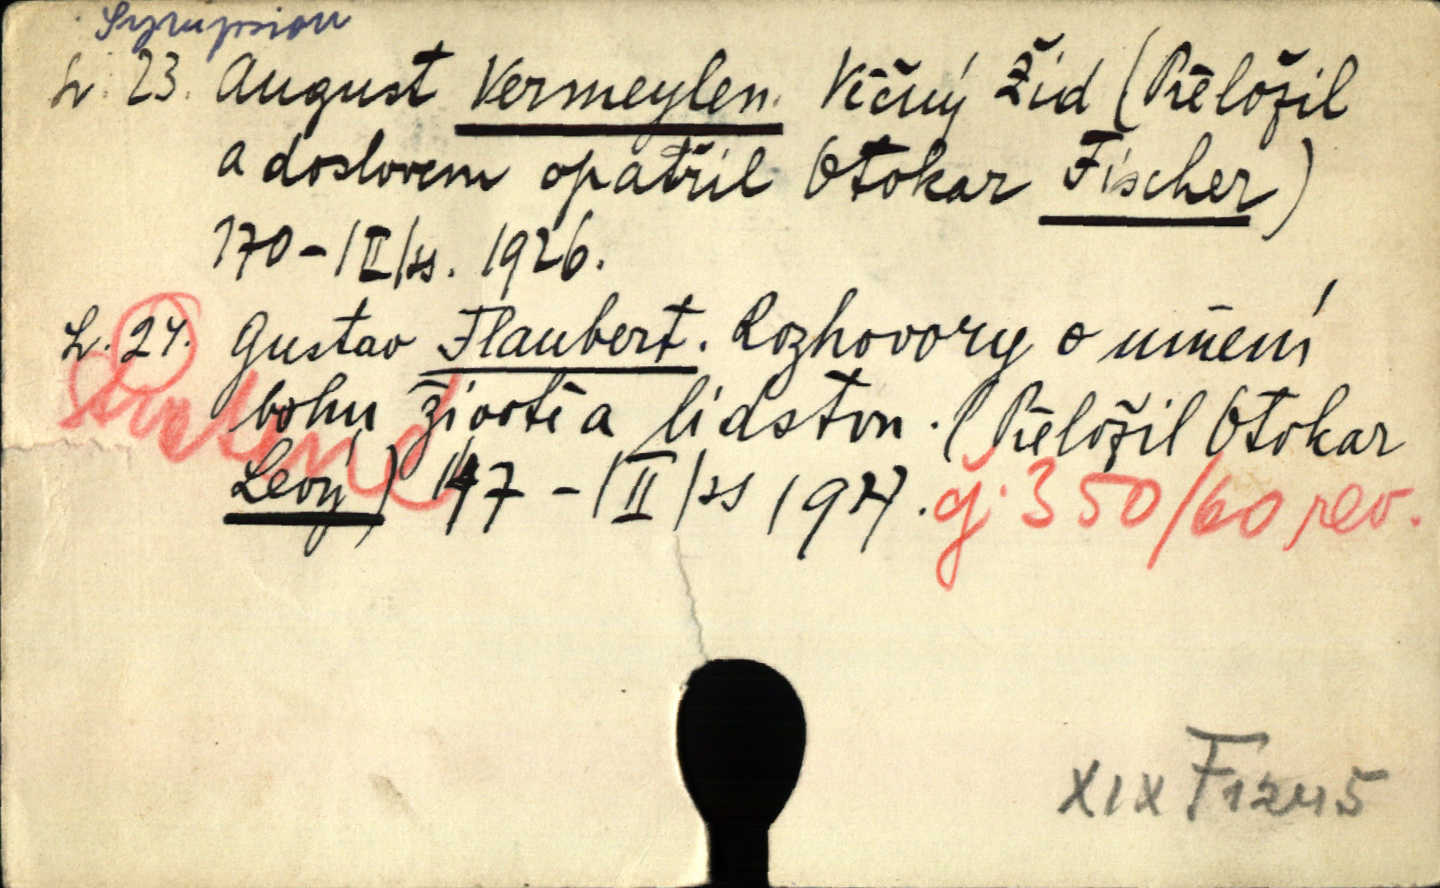 Symposion
Sv. 23. August Vermeylen. Věčný Žid (Přeložil
a doslovem opatřil Otokar Fischer)
170-|II|ss. 1926.
Sv. 24. Gustav Flaubert. Rozhovory o umění
bohu životě a lidstvu. (Přeložil Otokar
Levý) 147-|II|ss 1927.
Ztraceno g. 350/60 rev.
XIX F1245